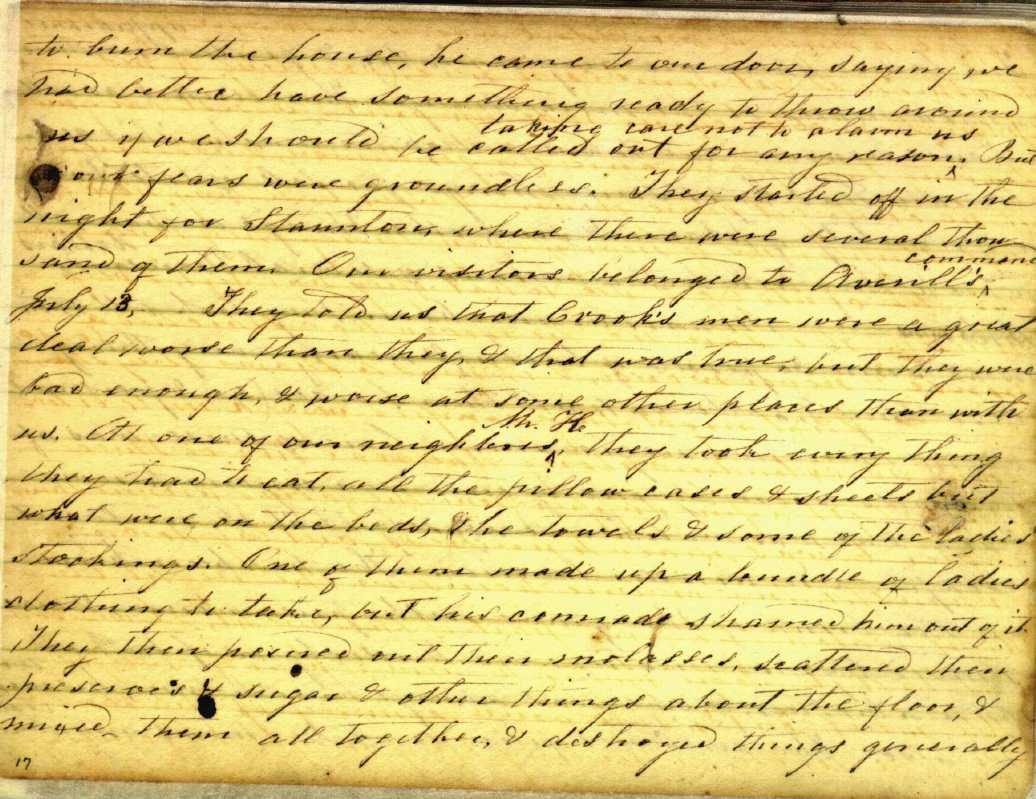 to burn the house, he came to our door, saying, we
had better have something ready to throw around
taking care not to alarm us
us if we should be called out for any reason. But
our fears were groundless. They started off in the
night for Staunton, where there were several thou
command
sand of them. Our visitors belonged to Averill's
July 13, They told us that Crook's men were a great
deal worse than they, & that was true, but they were
bad enough, & worse at some other places than with
Mr. H.
us. At one of our neighbors, they took every thing
they had to eat, all the pillow cases & sheets but
what were on the beds, & the towels & some of the ladies
stockings. One of them made up a bundle of ladies
clothing to take, but his comrade shamed him out of it
They then poured out their molasses, scattered their
preserves & sugar & other things about the floor, &
mixed them all together, & destroyed things generally
17